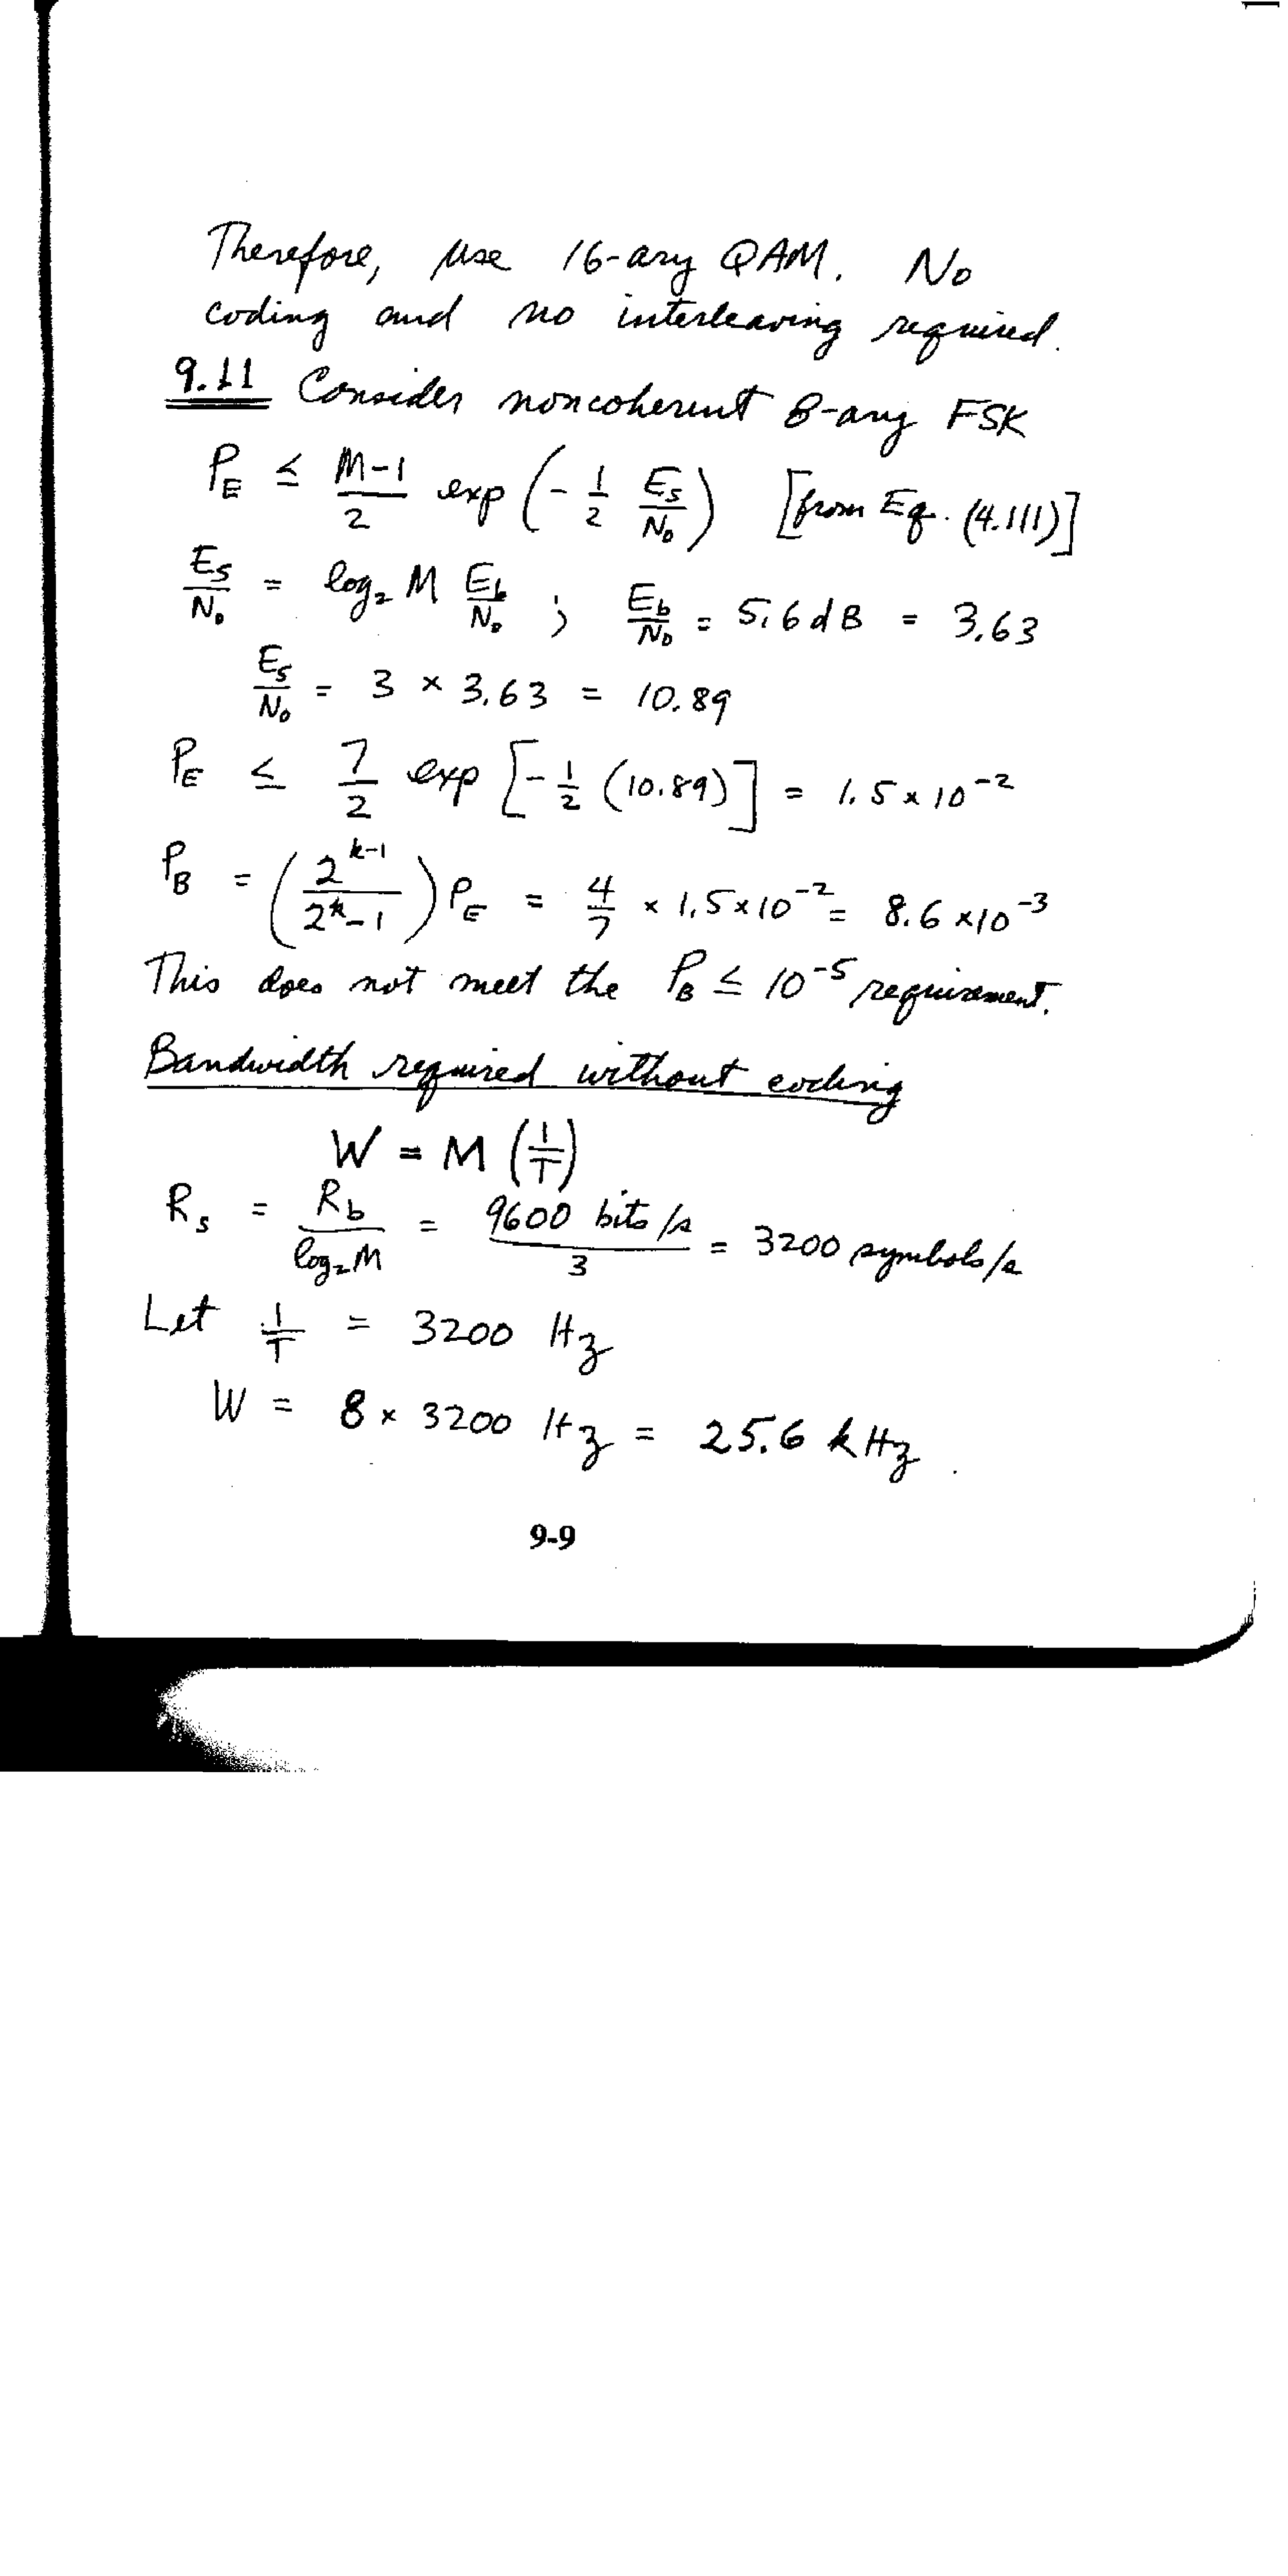 Therefore, use 16-ary QAM. No
coding and no interleaving required.
9.11 Consider noncoherent 8-ary FSK
P_E ≤ (M-1)/2 exp(-1/2 E_s/N_0) [from Eq. (4.111)]
E_s/N_0 = log_2 M E_b/N_0 ; E_b/N_0 = 5.6 dB = 3.63
E_s/N_0 = 3 × 3.63 = 10.89
P_E ≤ 7/2 exp[-1/2 (10.89)] = 1.5 × 10^-2
P_B = (2^(k-1)/(2^k-1)) P_E = 4/7 × 1.5 × 10^-2 = 8.6 × 10^-3
This does not meet the P_B ≤ 10^-5 requirement.
Bandwidth required without coding
W = M (1/T)
R_s = R_b/log_2 M = 9600 bits/s / 3 = 3200 symbols/s
Let 1/T = 3200 Hz
W = 8 × 3200 Hz = 25.6 kHz.
9-9